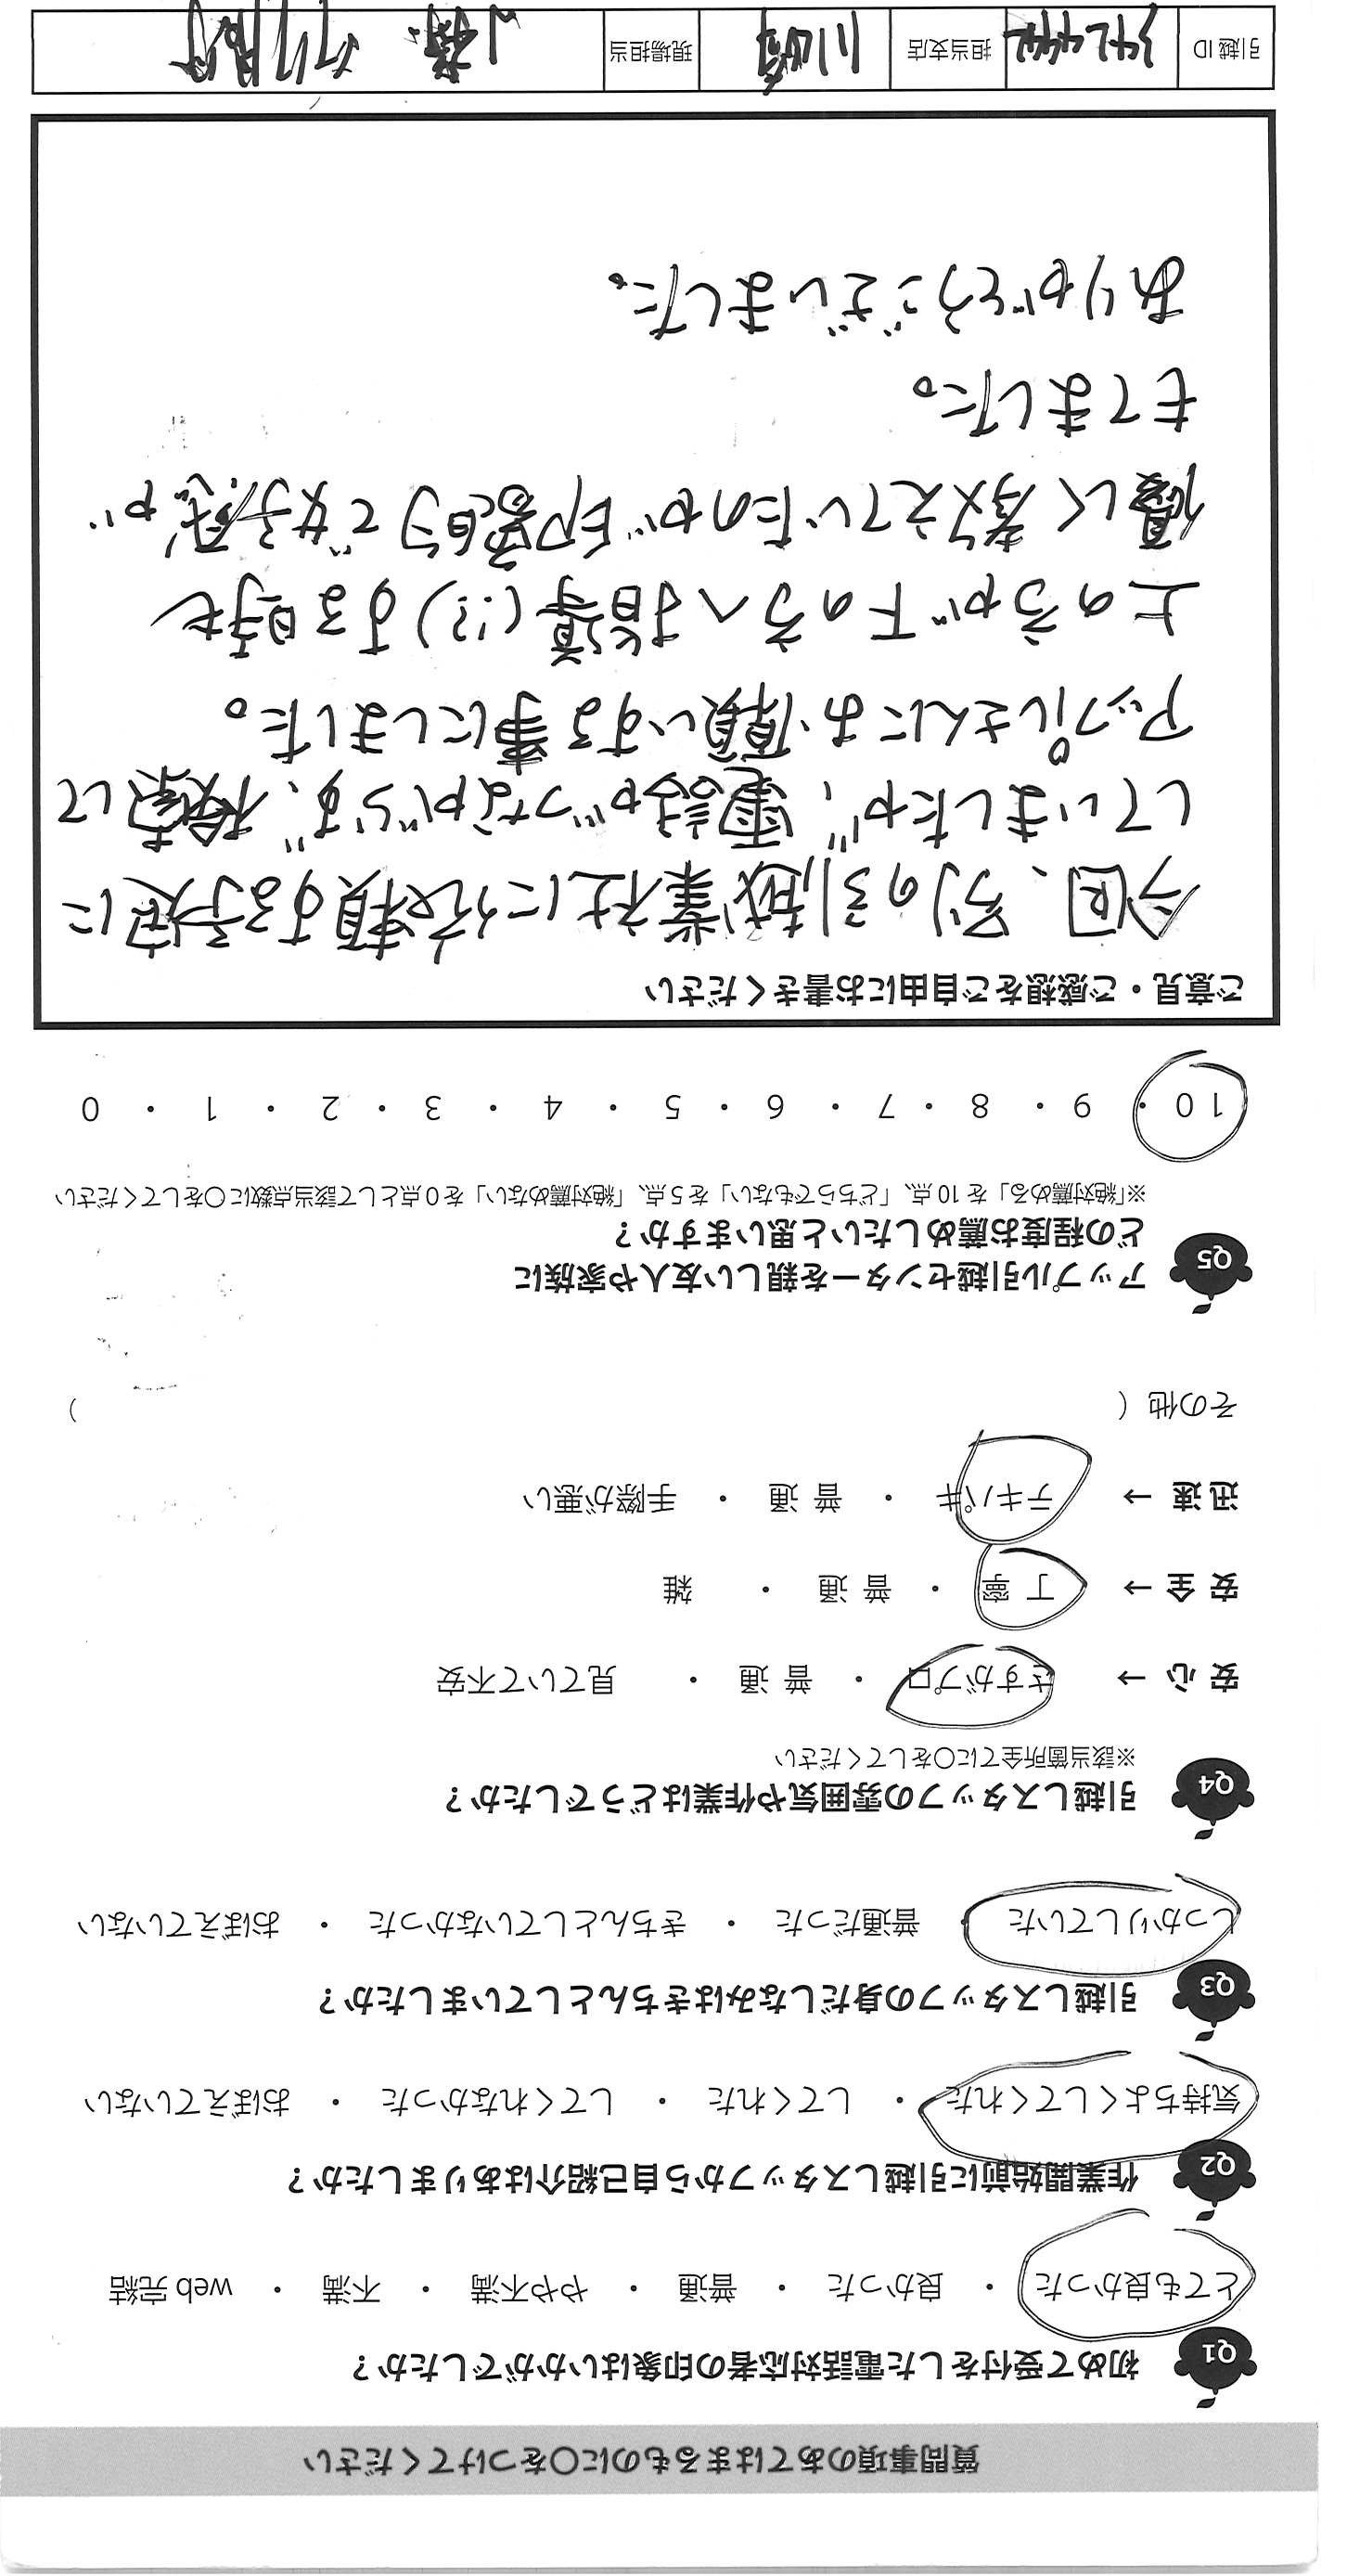 質問事項のあてはまるものに○をつけてください
Q1 初めて受付をした電話対応者の印象はいかがでしたか？
とても良かった ・ 良かった ・ 普通 ・ やや不満 ・ 不満 ・ web 完結
Q2 作業開始前に引越しスタッフから自己紹介はありましたか？
気持ちよくしてくれた ・ してくれた ・ してくれなかった ・ おぼえていない
Q3 引越しスタッフの身だしなみはきちんとしていましたか？
しっかりしていた ・ 普通だった ・ きちんとしていなかった ・ おぼえていない
Q4 引越しスタッフの雰囲気や作業はどうでしたか？
※該当箇所全てに○をしてください
安心 → さすがプロ ・ 普通 ・ 見ていて不安
安全 → 丁寧 ・ 普通 ・ 雑
迅速 → テキパキ ・ 普通 ・ 手際が悪い
その他 ( )
Q5 アップル引越センターを親しい友人や家族に
どの程度お薦めしたいと思いますか？
※「絶対薦める」を 10 点、「どちらでもない」を 5 点、「絶対薦めない」を 0 点として該当点数に○をしてください
10 ・ 9 ・ 8 ・ 7 ・ 6 ・ 5 ・ 4 ・ 3 ・ 2 ・ 1 ・ 0
ご意見・ご感想をご自由にお書きください
今回、別の引越業社に依頼する予定に
していましたが、電話がつながらず、検索して
アップルさんにお願いする事にしました。
上の方が下の方へ指導(!?)する時も
優しく考えていたのが印象的で好感が
もてました。
ありがとうございました。
引越 ID 担当支店 川崎 現場担当